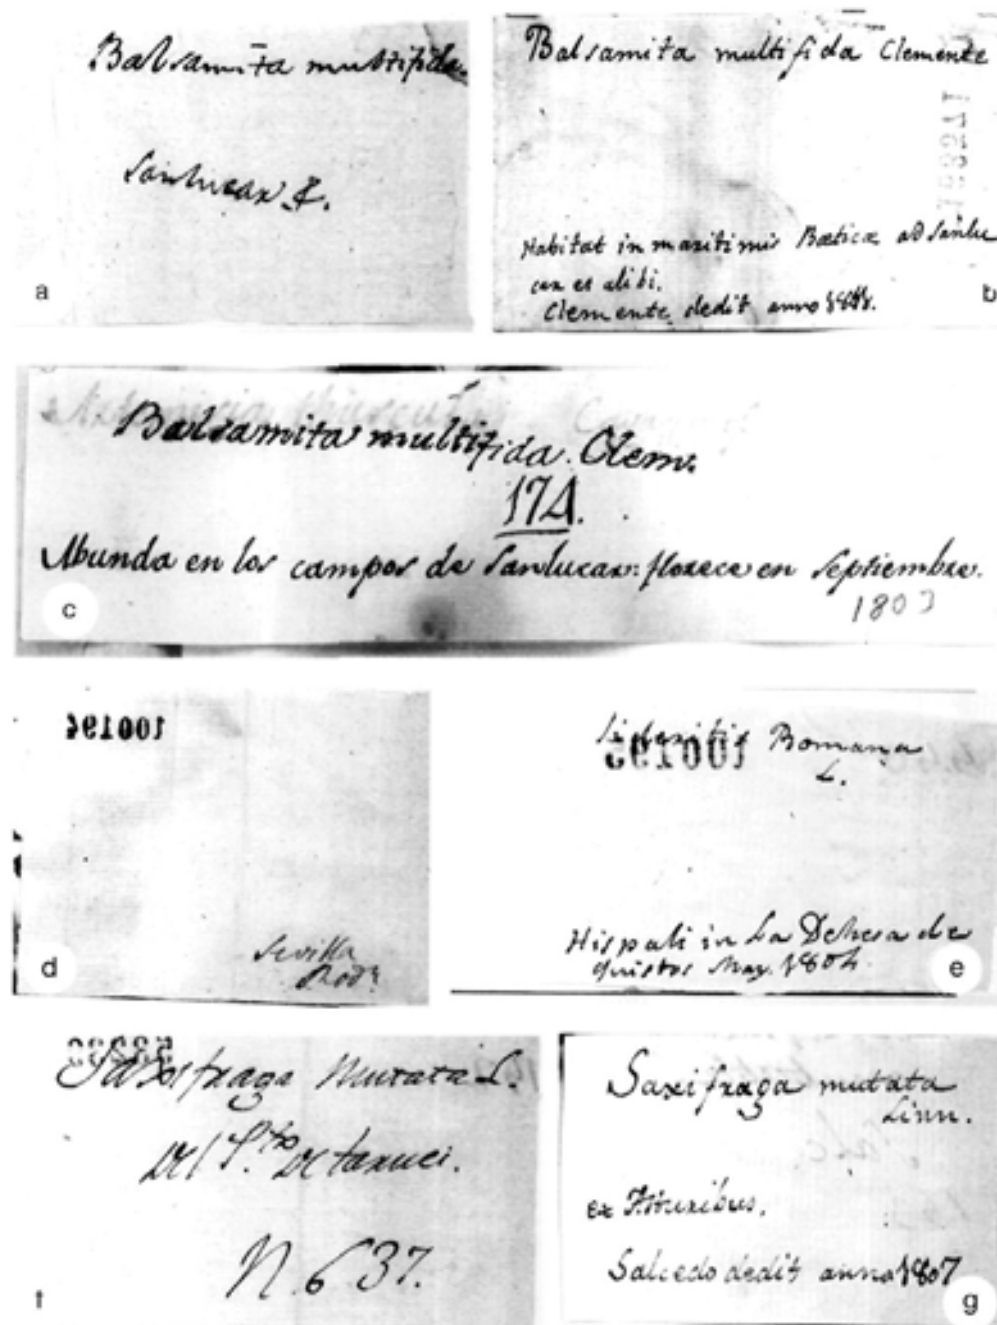 Balsamita multifida
Sanlucar
a
Balsamita multifida Clemente
Habitat in maritimis Bæticæ ad Sanlu
car et alibi.
Clemente dedit anno
b
Balsamita multifida. Clem.
174.
Abunda en los campos de Sanlucar: florece en Septiembre.
1803
c
100194
Sevilla
Rodz
d
100195
Sideritis Romana
L.
Hispali in La Dehesa de
May. 1804
e
Saxifraga Mutata L.
Del P.to De
N. 637.
f
Saxifraga mutata
Linn.
Ex Asturibus.
Salcedo dedit anno 1807
g